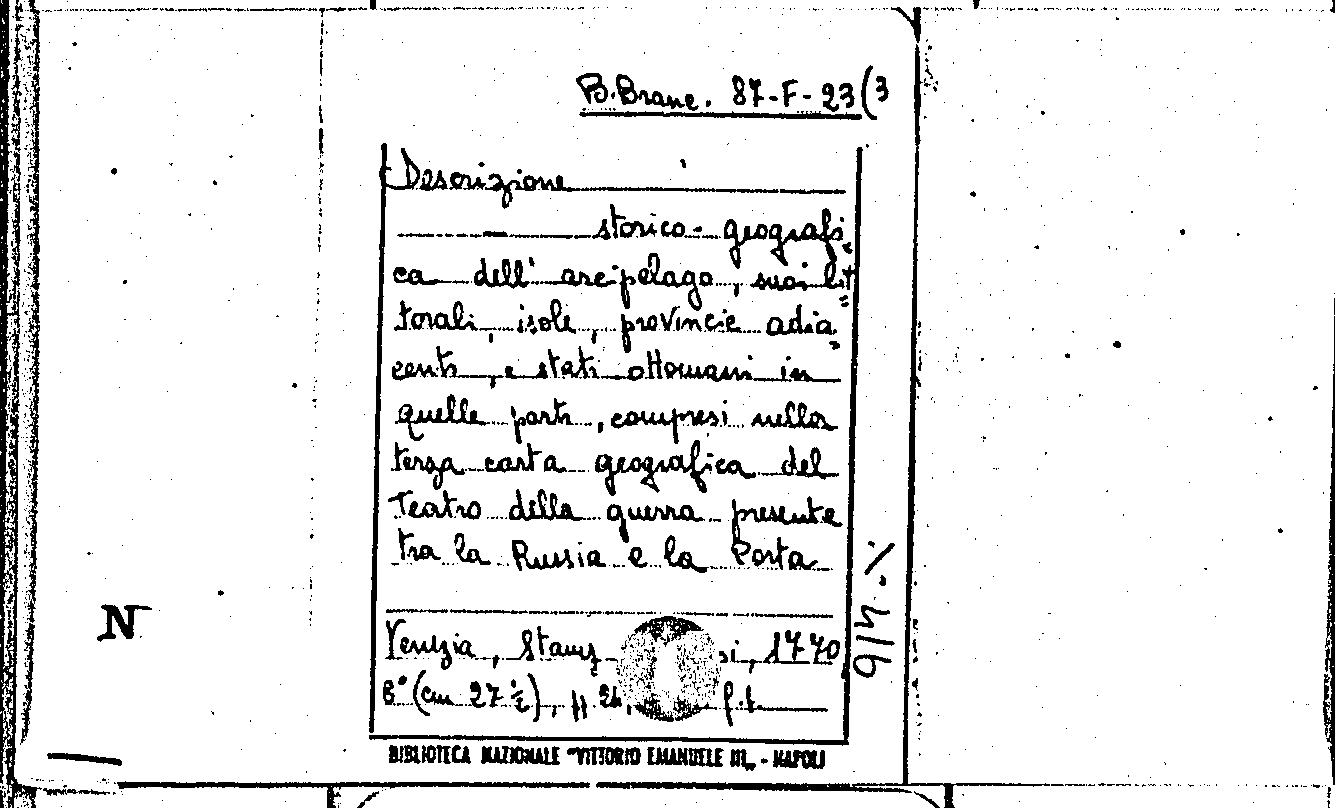 B. Branc. 87-F-23(3
Descrizione
storico-geografi=
ca dell' arcipelago, suoi lit=
torali, isole, provincie adia=
centi, e stati ottomani in
quelle parti, compresi nella
terza carta geografica del
Teatro della guerra presente
tra la Russia e la Porta
Venezia, 1770
8° (cm 27 ½),
N
BIBLIOTECA NAZIONALE "VITTORIO EMANUELE III" - NAPOLI